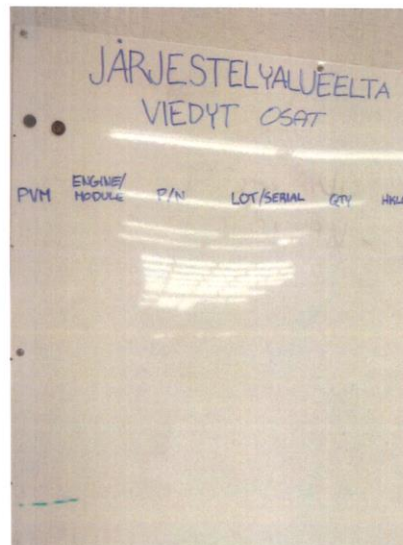 JÄRJESTELYALUEELTA
VIEDYT OSAT
PVM ENGINE/ MODULE P/N LOT/SERIAL QTY